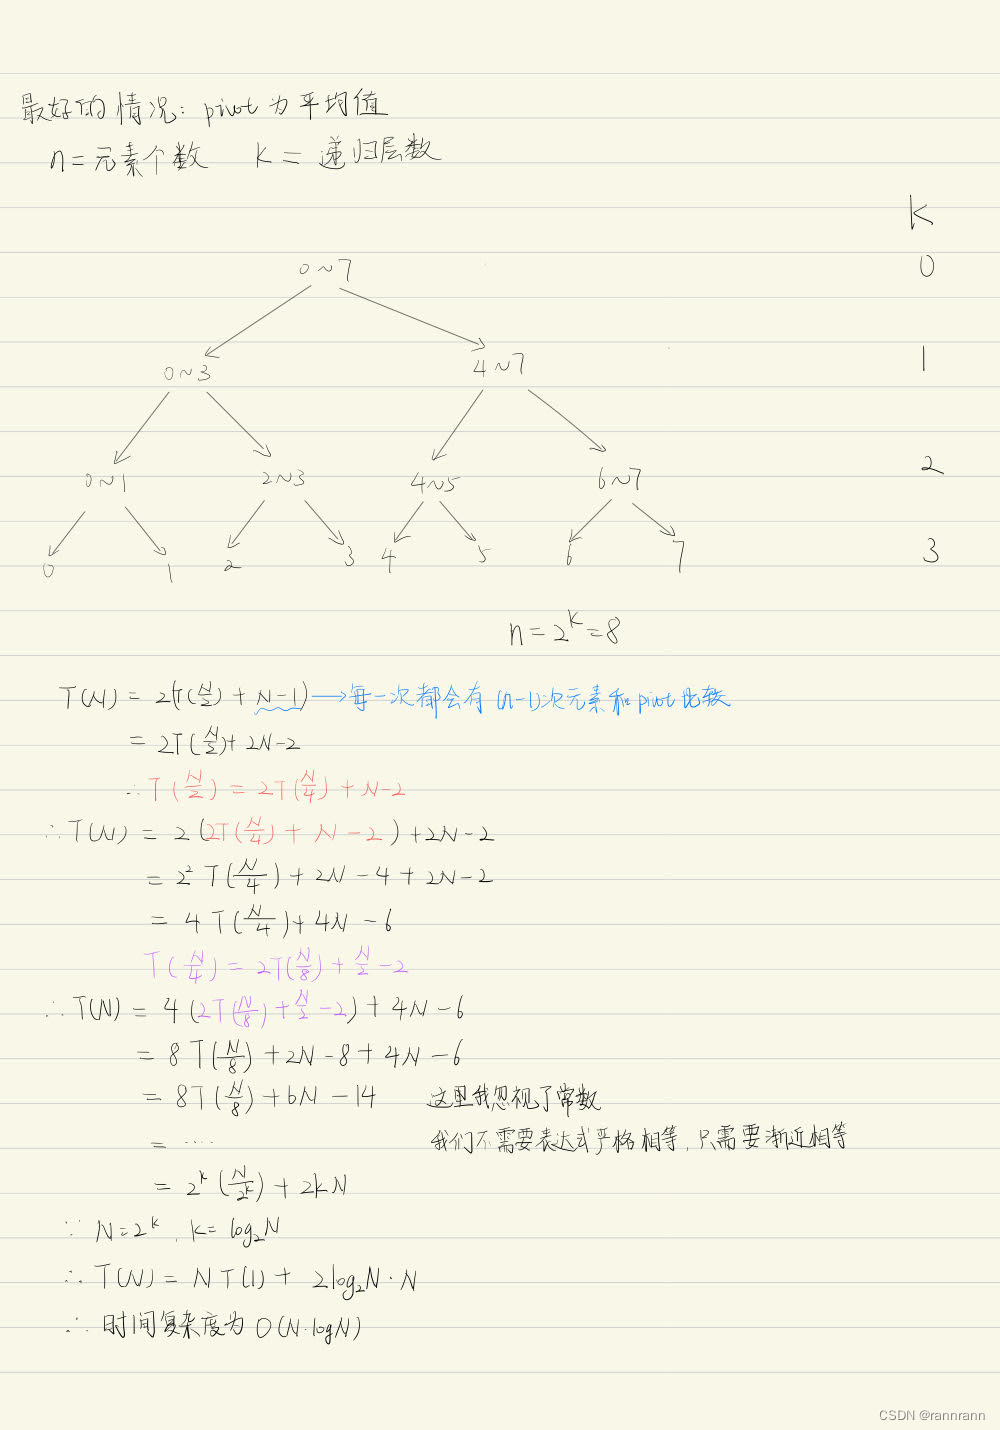 最好的情况: pivot 为平均值
n = 元素个数 k = 递归层数
K
0~7 0
0~3 4~7 1
0~1 2~3 4~5 6~7 2
0 1 2 3 4 5 6 7 3
n = 2^k = 8
T(N) = 2(T(N/2) + N-1) → 每一次都会有 (n-1)次元素和 pivot 比较
= 2T(N/2) + 2N-2
∴ T(N/2) = 2T(N/4) + N-2
∴ T(N) = 2(2T(N/4) + N-2) + 2N-2
= 2² T(N/4) + 2N - 4 + 2N - 2
= 4T(N/4) + 4N - 6
T(N/4) = 2T(N/8) + N/2 - 2
∴ T(N) = 4(2T(N/8) + N/2 - 2) + 4N - 6
= 8T(N/8) + 2N - 8 + 4N - 6
= 8T(N/8) + 6N - 14 这里我忽视了常数
= ···· 我们不需要表达式严格相等, 只需要渐近相等
= 2^k (N/2^k) + 2kN
∵ N = 2^k, k = log₂N
∴ T(N) = NT(1) + 2log₂N·N
∴ 时间复杂度为 O(N·logN)
CSDN @rannrann